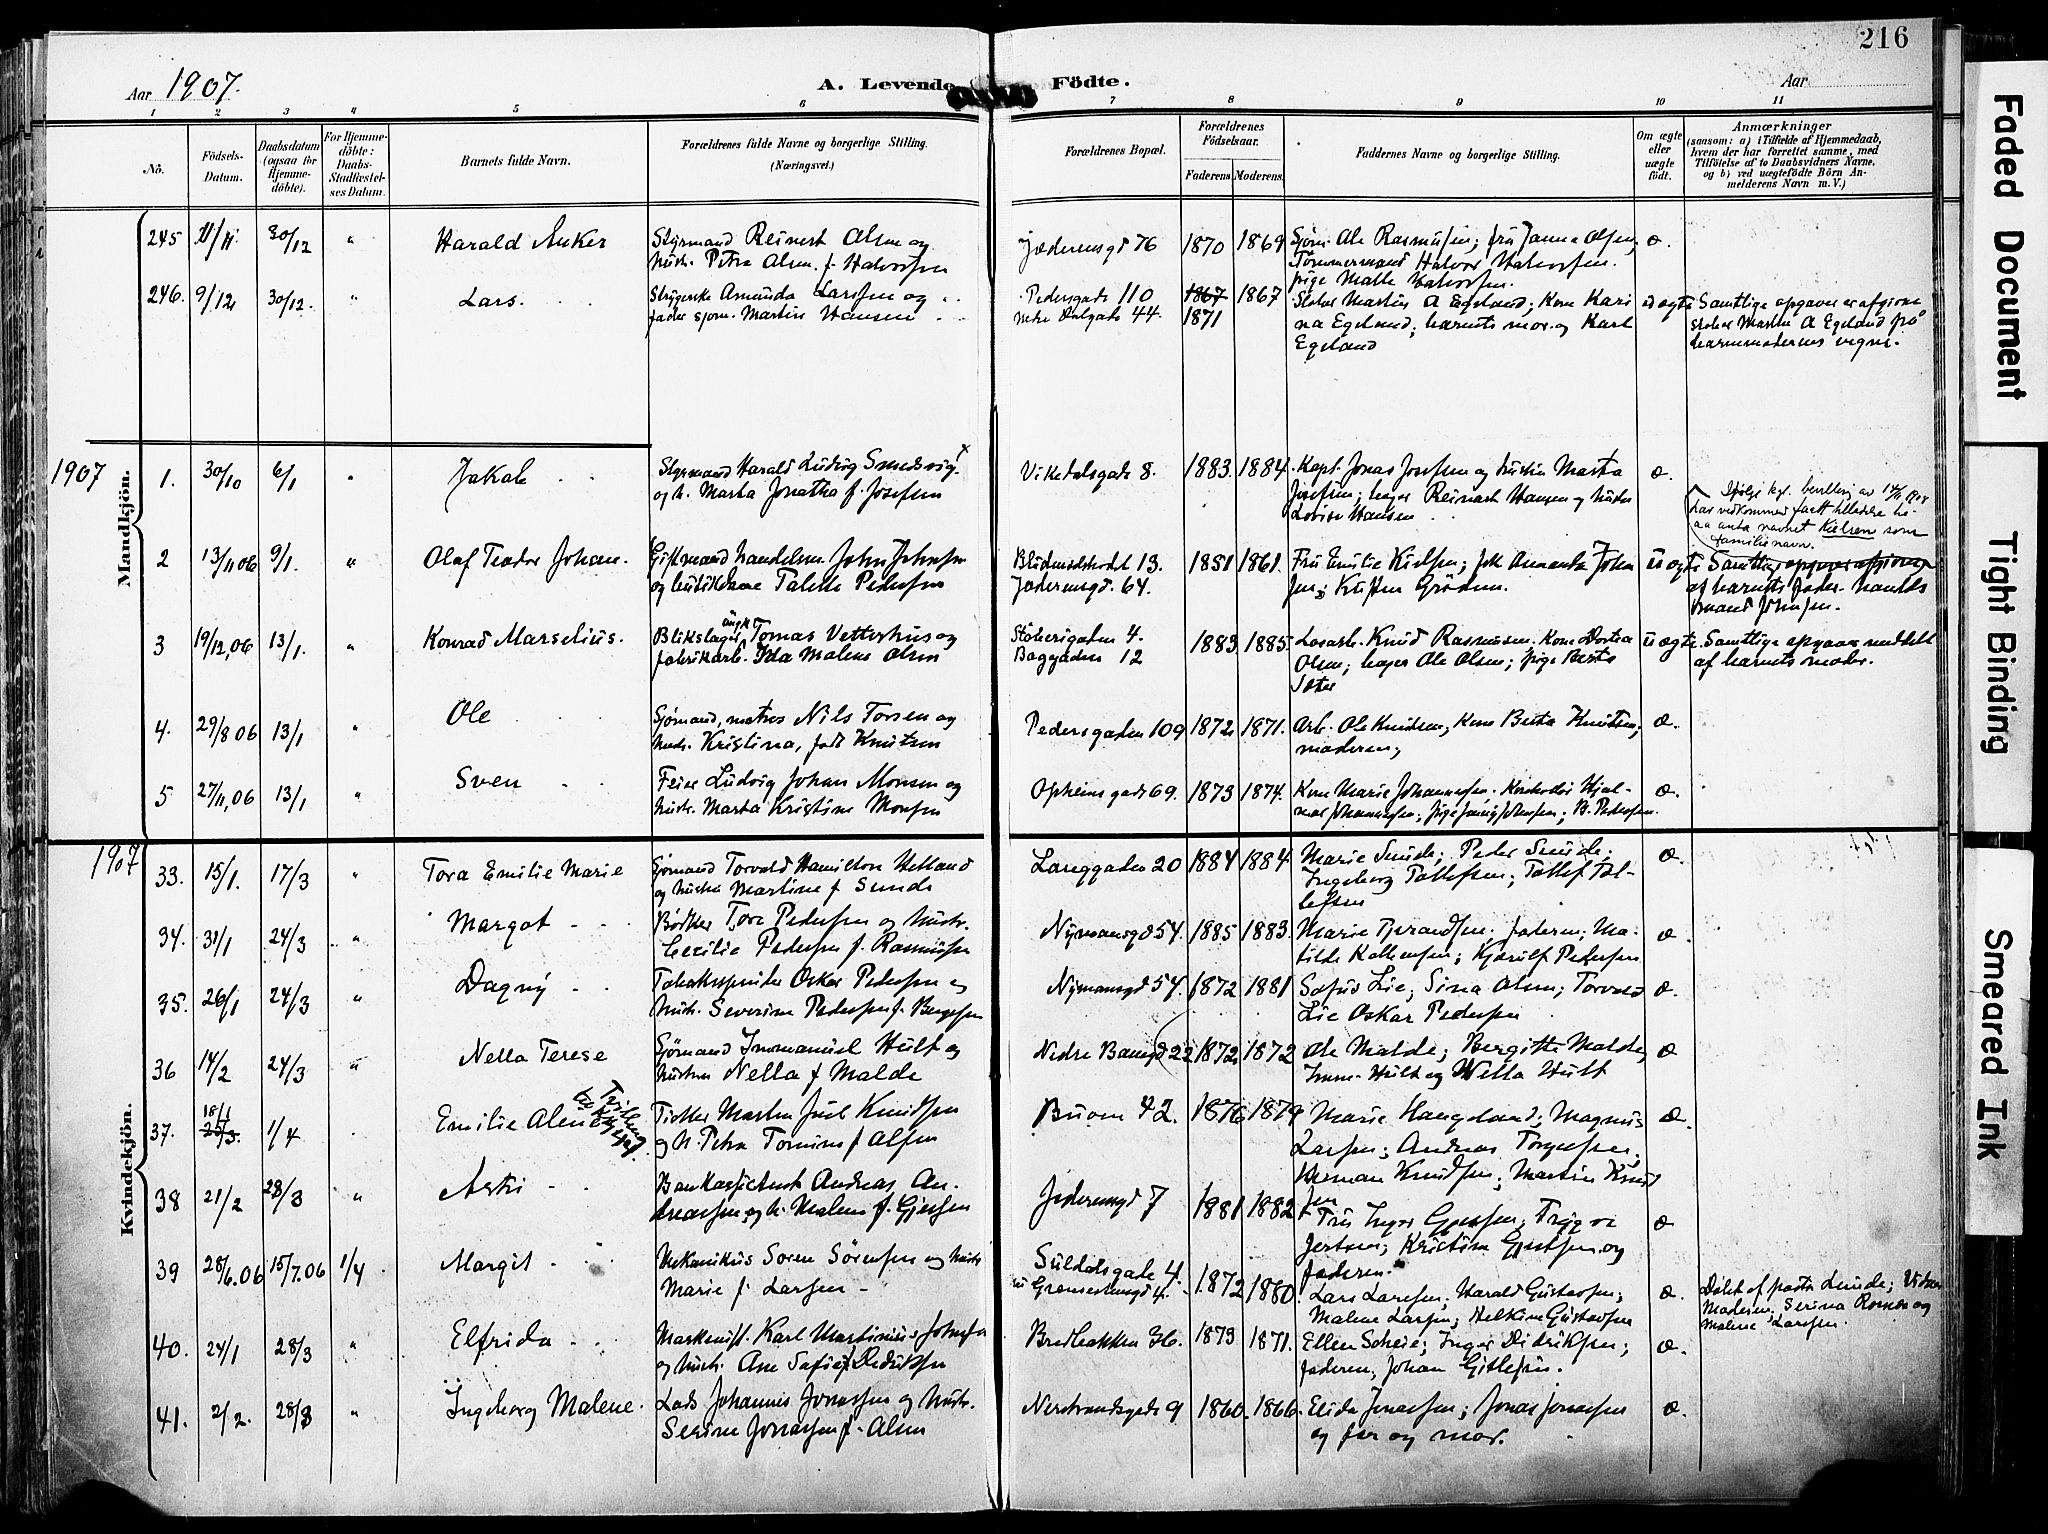 216
Aar 1907.
A. Levende Födte.
Aar
1 2 3 4 5 6 7 8 9 10 11
No.
Födsels-Datum.
Daabsdatum (ogsaa for Hjemme-döbte).
For Hjemme-döbte: Daabs-Stadfæstel-ses Datum.
Barnets fulde Navn.
Forældrenes fulde Navne og borgerlige Stilling. (Næringsvei.)
Forældrenes Bopæl.
Forældrenes Födselsaar.
Faderens. Moderens.
Faddernes Navne og borgerlige Stilling.
Om ægte eller uægte födt.
Anmærkninger
(saasom: a) i Tilfælde af Hjemmedaab, hvem der har forrettet samme, med Tilföielse af to Daabsvidners Navne, og b) ved uægtefödte Börn An-melderens Navn m. V.)
245 11/11 30/12 " Harald Anker
Styrmand Reinert Olsen og
hustr. Petra Olsen f. Halvorsen
Jæderensgd 76 1870 1869
Sjøm. Ole Rasmussen; fru Janna Olsen;
Tømmermand Halvor Halvorsen.
pige Malle Halvorsen.
æ.
246. 9/12 30/12. " Lars.
Strygerske Amunda Larssen og
fader sjøm. Martin Hansen
Pedersgade 110
nedre Dalgade 44.
1867 1867
1871
Stober Martin A Egeland; Kone Kari
na Egeland; barnets mor og Karl
Egeland
uægte
Samtlige opgaver er afgivne
stober Martin A Egeland på
barnemoderens vegne.
1907
Mandkjön.
1. 30/10 6/1 " Jakob
Styrmand Harald Ludvig Smedsvig
og h. Marta Jonatha f. Josefsen
Vikedalsgade 8. 1883. 1884.
Kapt. Jonas Josefsen og hustru Marta
Josefsen; bager Reinert Hansen og hustru
Lovise Hansen
æ.
Ifølge kgl. bevilling av 14/11 1908
har vedkommende faatt tilladelse til
aa anta navnet Kielsen som
familienavn.
2 13/11 06 9/1. " Olaf Teodor Johan.
Giftmand handelsm. John Johnsen
og butikdame Talette Pedersen
Blidensolstredet 13.
Jæderensgd. 64.
1851 1861.
Fru Emilie Kielsen; frk Amanda John
sen; Kristen Grødem.
uægte
Samtlige opgaver afgivne
af barnets fader handels
mand Johnsen.
3 19/12,06 13/1. " Konrad Marselius.
Blikslager Tomas Vetterhus og
fabrikarb. Ida Malene Olsen
Støberigaden 4.
Baggaden 12
1883 1885.
Løsarb. Knud Rasmussen. Kone Dortea
Olsen; bager Ole Olsen; pige Berta
uægte.
Samtlige opgaver meddelt
af barnets moder.
4. 29/8 06 13/1 " Ole
Sjømand, matros Nils Torsen og
hustr. Kristina, født Knutsen
Pedersgaden 109 1872 1871.
Arb. Ole Knudsen, kone Berta Knutsen;
moderen;
æ.
5 27/11,06 13/1 " Sven
Feier Ludvig Johan Monsen og
hustr. Marta Kristine Monsen
Opheimsgade 69. 1873 1874.
Kone Marie Johannessen. Kontorbud Hjal-
mar Johannessen; pige Jenny Johnsen; B. Pedersen.
æ.
1907
Kvindekjön.
33. 15/1. 17/3 " Tora Emilie Marie
Sjømand Torvald Hamilton Helland
og hustru Martine f. Sunde
Langgaden 20 1884 1884.
Marie Sunde; Peder Sunde.
Ingeborg Tollefsen; Tollef Tol-
lefsen
æ.
34. 31/1 24/3 " Margot
Bødker Tore Pedersen og hustr.
Cecilie Pedersen f. Rasmussen
Nymansgd 54. 1885 1883.
Marie Tjerandsen. faderen; Ma-
tilde Kallensen; Kjerulf Pedersen
æ.
35. 26/1 24/3 " Dagny
Tobaksspinder Oskar Pedersen og
hustr. Severine Pedersen f. Bergesen
Nymansgd 54. 1872 1881
Sofus Lie; Sina Olsen; Torvald
Lie Oskar Pedersen
æ.
36 14/2 24/3 " Nella Terese
Sjømand Immanuel Hult og
hustru Nella f Malde
Nedre Banegd 22 1872 1872
Ole Malde; Bergitte Malde;
Imm. Hult og Nella Hult
æ
37. 18/1 1/4 Emilie Olene
Martin Juel Knudsen
og h. Petra Tomine f Olsen
Buøen 42. 1876 1879
Marie Haugeland; Magnus
Larsen; Andreas Torgersen;
Herman Knudsen; Martin Knud
sen
æ.
38 21/2 28/3 " Astri
Bankassistent Andreas An-
dreassen og h. Malene f. Gjertsen
Jæderensgd 7 1881 1882
Fru Inger Gjertsen; Trygve
Jertsen; Kristine Gjertsen og
faderen.
æ
39 28/6.06 15/7.06 1/4 Margit
Mekanikus Søren Sørensen og hustr
Marie f. Larsen
Suldalsgade 4.
1872 1880.
Lars Larsen; Harald Gustavsen;
Malene Larsen; Helkine Gustavsen
æ.
Døbt af pastor Lunde; Vidner
Moderen. Serina og
Malene Larsen.
40. 24/1 28/3 " Elfrida
Maskinist. Karl Martinius Johnsen
og hustr. Ane Sofie f. Didriksen
Bredbakken 36. 1873 1871.
Ellen Scheie; Inger Didriksen;
faderen, Johan Gitlesen.
æ.
41. 2/2. 28/3 " Ingeborg Malene.
Lods Johannes Jonassen og hustr.
Serine Jonassen f. Olsen
Nerstrandsgade 9 1860. 1866.
Elida Jonassen; Jonas Jonassen
og far og mor.
æ.
Faded Document
Tight Binding
Smeared Ink